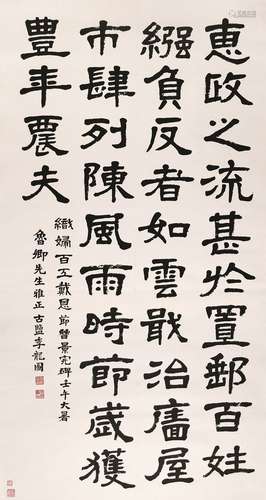 恵政之流甚扵置郵百姓
繈負反者如雲戢治廧屋
市肆列陳風雨時節歲獲
豐年農夫
織婦百工戴恩 節曹景完碑 壬午大暑
魯卿先生雅正 古鹽李龍圖